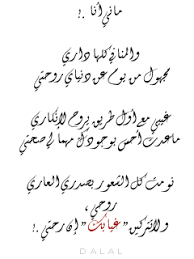 ماني أنا .!
والمنافي كلها داري
مجهول من يوم عن دنياي روحتي
غيبي مع أول طريق بروح لإنكاري
ماعدت أحس بوجودك مهما لي صحتي
نومت كل الشعور بصدري العاري
روحي ,
ولا تتركين " غيابك " إن رحتي .!
DALAL